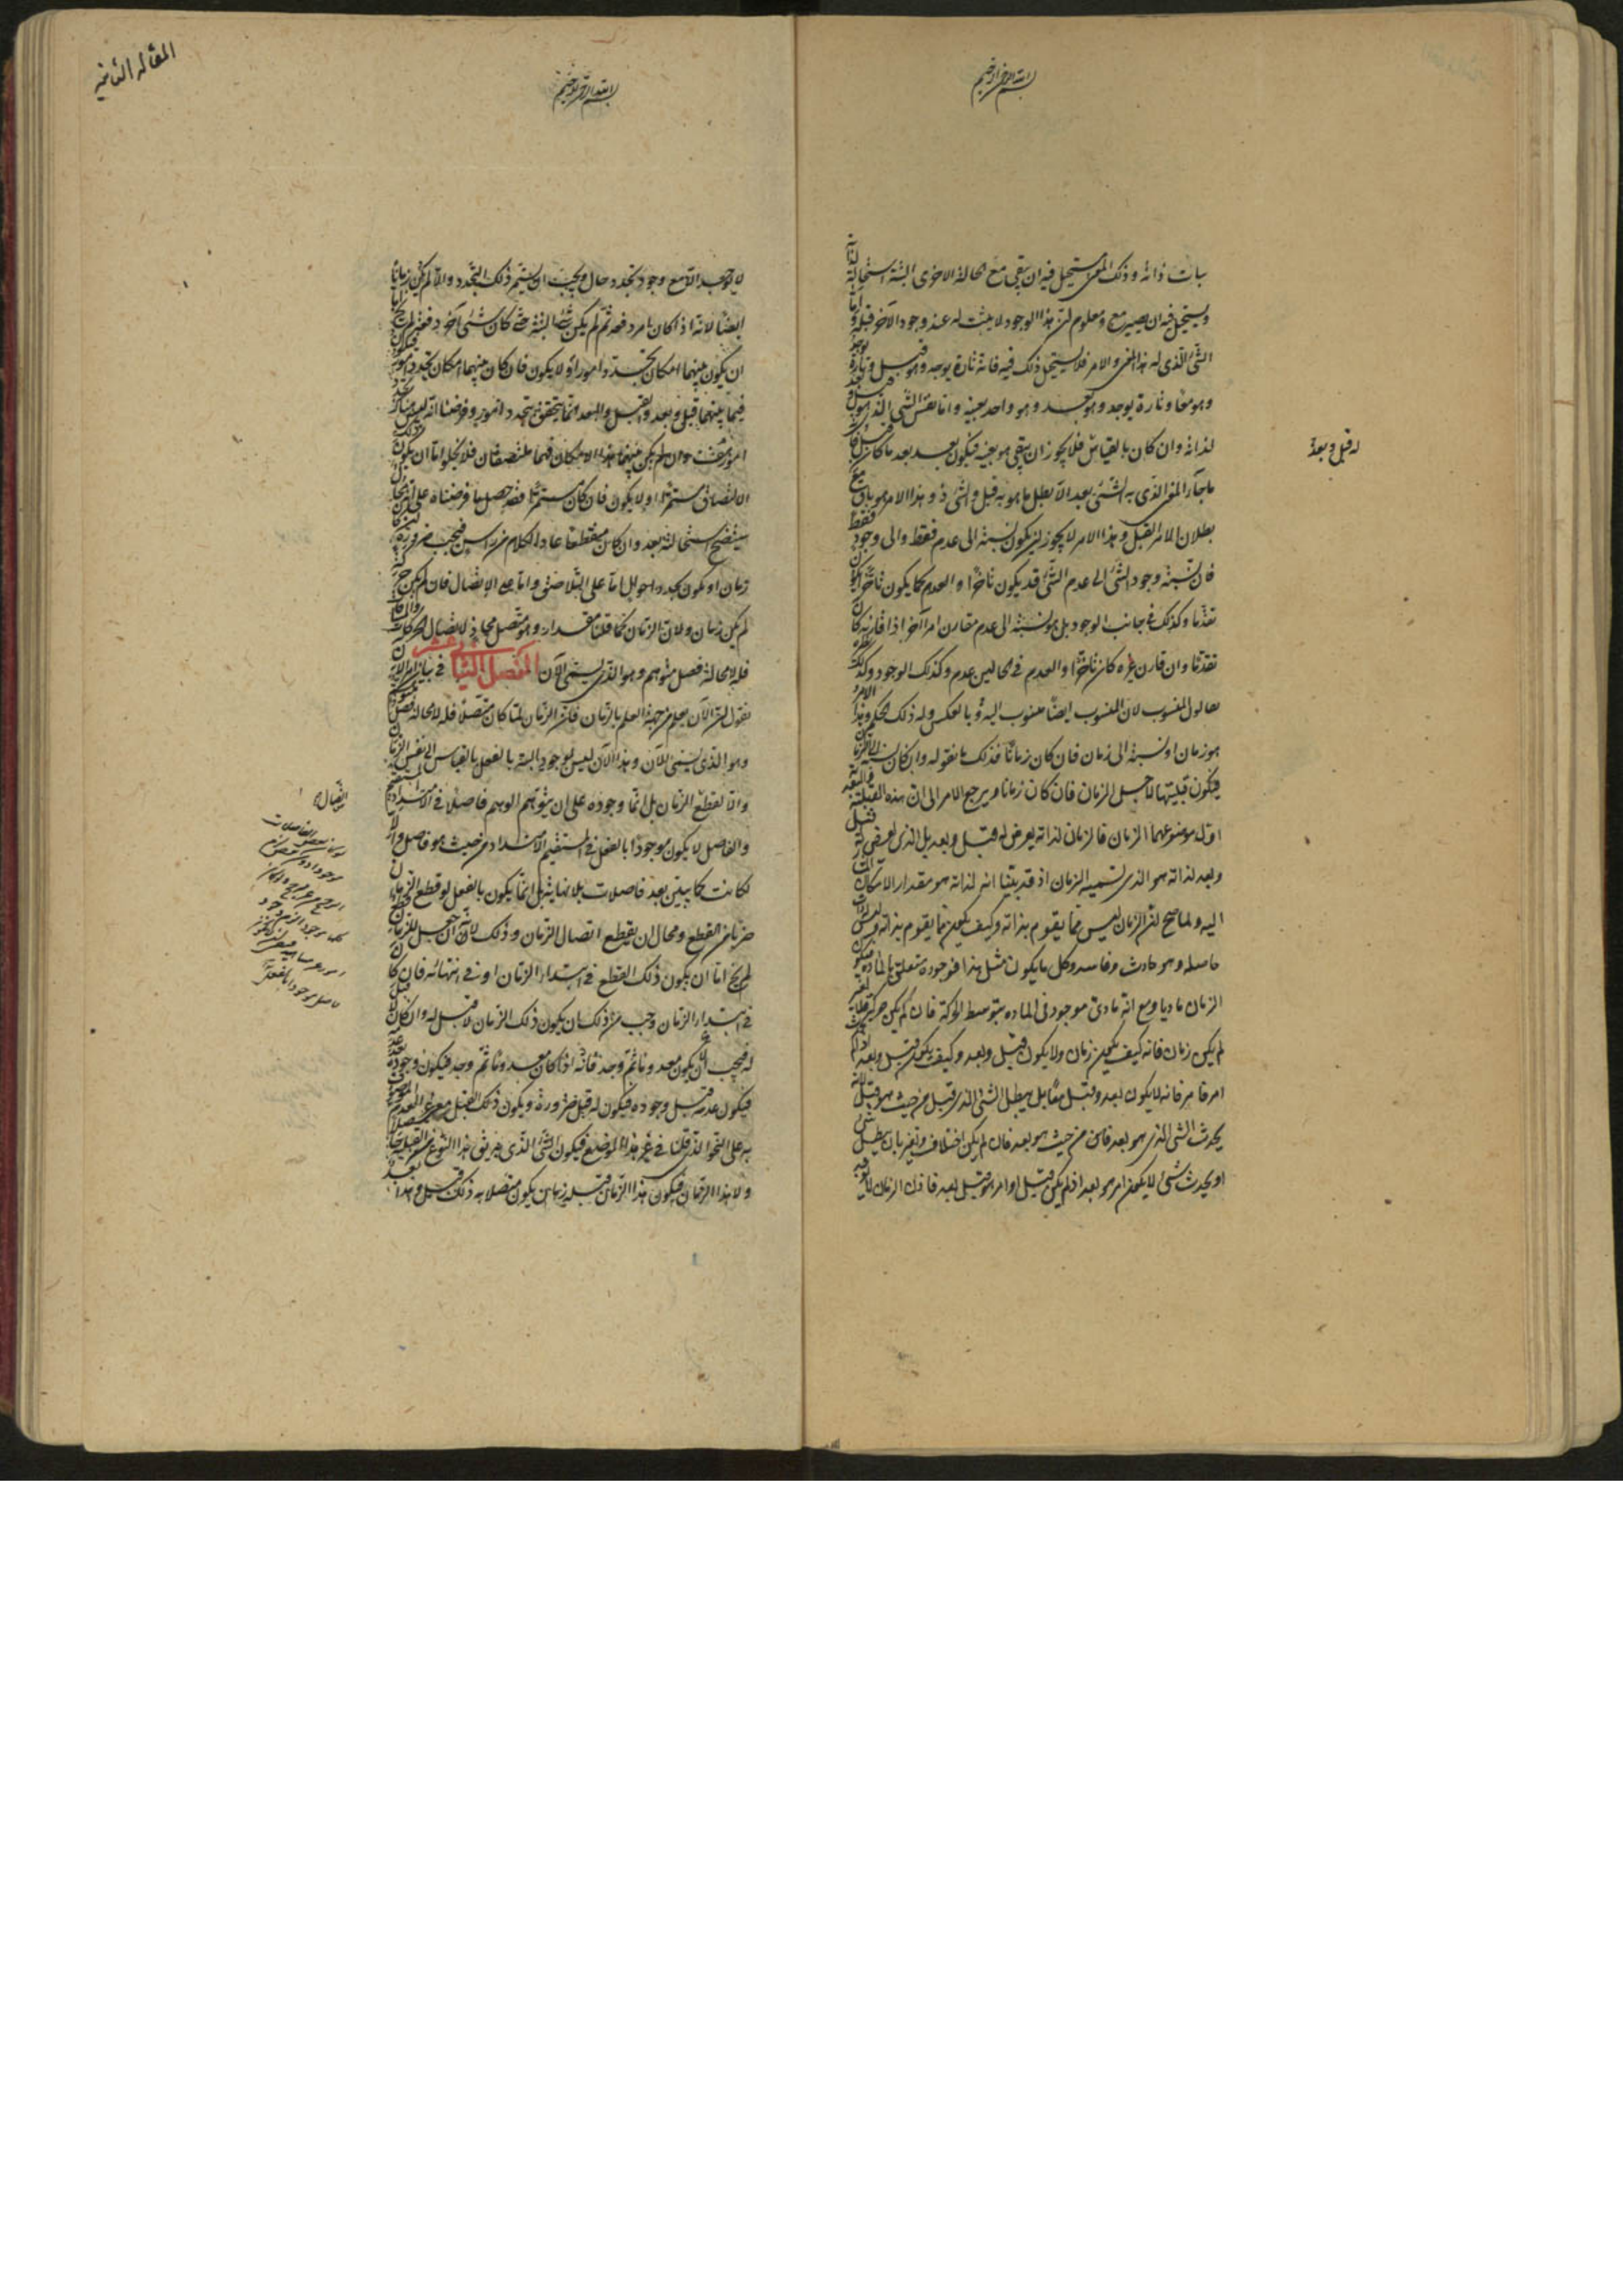 بسم الله الرحمن الرحيم
بات ذاته وذلك المعنى يستحيل فيه ان يبقى مع الحالة الاخرى البتة استحالة لذاته
ويستحيل فيه ان يصير مع ومعلوم ان هذا الوجود لا يثبت له عند وجود الآخر قبله واما
الشئ الذى له هذا المعنى والامر فلا يستحيل ذلك فيه فانه تارة يوجد وهو قبل وتارة يوجد
وهو معا وتارة يوجد وهو بعد وهو واحد بعينه واما نفس الشئ الذى هو قبل وبعد
لذاته وان كان بالقياس فلا يجوز ان يبقى هو بعينه فيكون بعد بعد ما كان قبل فانه
ما جاء المعنى الذى به الشئ بعد الا بطل ما هو به قبل والشئ ذو هذا الامر هو باق مع
بطلان الامر القبل وهذا الامر لا يجوز ان يكون نسبته الى عدم فقط والى وجود فقط
فان نسبة وجود الشئ الى عدم الشئ قد يكون تأخرا والعدم كما يكون تأخرا يكون
تقدما وكذلك فى جانب الوجود بل هو نسبته الى عدم مقارن امرا آخر اذا قارنه كان
تقدما وان قارن غيره كان تأخرا والعدم فى الحالين عدم وكذلك الوجود وكذلك
حال المنسوب لان المنسوب ايضا منسوب اليه وبالعكس وله ذلك الحكم وهذا الامر
هو زمان او نسبة الى زمان فان كان زمانا فذلك ما نقوله وان كان نسبة الى الزمان
فيكون قبليتها لاجل الزمان ويرجع الامر الى ان هذه القبلية والبعدية
اول موضوعهما الزمان فالزمان لذاته يعرض له قبل وبعد بل الذى يعرض له قبل
وبعد لذاته هو الذى نسميه الزمان اذ قد بينا انه لذاته هو مقدار الامكان المشار
اليه ولما صح ان الزمان ليس مما يقوم بذاته وكيف يكون مما يقوم بذاته وليس له ذات
حاصلة وهو حادث وفاسد وكل ما يكون مثل هذا فوجوده متعلق بالمادة فيكون
الزمان ماديا ومع انه مادى موجود فى المادة بتوسط الحركة فان لم يكن حركة ولا تغير
لم يكن زمان فانه كيف يكون زمان ولا يكون قبل وبعد وكيف يكون قبل وبعد اذا لم يحدث
امر فامر فانه لا يكون بعد وقبل معا بل يبطل الشئ الذى قبل من حيث هو قبل لانه
يحدث الشئ الذى هو بعد من حيث هو بعد فان لم يكن اختلاف وتغير بان يبطل شئ
او يحدث شئ لا يكون امر هو بعد اذ لم يكن قبل او امر هو قبل بعد فاذن الزمان
له قبل وبعد
المقالة الثانية
بسم الله الرحمن الرحيم
لا يوجد الا مع وجود تجدد حال ويجب ان يستمر ذلك التجدد والا لم يكن زمان
ايضا لانه اذا كان امر دفعة ثم لم يكن شئ البتة حتى كان شئ آخر دفعة لم يخل اما
ان يكون بينهما امكان تجدد امور او لا يكون فان كان بينهما امكان تجدد امور فيكون
فيما بينهما قبل وبعد والقبل والبعد انما يتحقق بتجدد امور وفرضنا انه ليس هناك تجدد
امور هذا خلف وان لم يكن بينهما هذا الامكان فهما ملتصقان فلا يخلو اما ان يكون ذلك
الالتصاق مستمرا او لا يكون فان كان مستمرا فقد حصل ما فرضناه
سيتضح استحالته بعد وان كان منقطعا عاد الكلام من رأس فيجب ضرورة ان كان
زمان ان يكون تجدد احوال اما على التلاصق واما على الاتصال فان لم يكن حركة
لم يكن زمان ولان الزمان كما قلنا مقدار وهو متصل محاذ لاتصال الحركات
فله لا محالة فصل متوهم وهو الذى يسمى الآن الفصل الثانى عشر فى بيان امر الآن
نقول ان الآن يعلم من جهة العلم بالزمان فان الزمان لما كان متصلا فله لا محالة فصل متوهم
وهو الذى يسمى الآن وهذا الآن ليس بموجود البتة بالفعل بالقياس الى نفس الزمان
والا لقطع الزمان بل انما وجوده على ان يتوهمه الوهم فاصلا فى الامتداد المستقيم
والفاصل لا يكون موجودا بالفعل فى المستقيم الامتداد من حيث هو فاصل والا
لكانت كما نبين بعد فاصلات بلا نهاية بل انما يكون بالفعل لو قطع الزمان
ضربا من القطع ومحال ان يقطع اتصال الزمان وذلك لانه ان جعل للزمان قطع
لم يخل اما ان يكون ذلك القطع فى ابتداء الزمان او فى انتهائه فان كان
فى ابتداء الزمان وجب من ذلك ان يكون ذلك الزمان لا قبل له وان كان لا قبل
له فيجب ان لا يكون معدوما ثم وجد فانه اذا كان معدوما ثم وجد فيكون وجوده بعد عدمه
فيكون عدمه قبل وجوده فيكون له قبل ضرورة ويكون ذلك القبل معنى غير العدم الموصوف
به على النحو الذى قلنا فى غير هذا الموضع فيكون الشئ الذى به يقال هذا النوع من القبلية حاصلا
ولا هذا الزمان فيكون هذا الزمان قبله زمان يكون متصلا به ذلك قبل وهذا بعد
اتصال